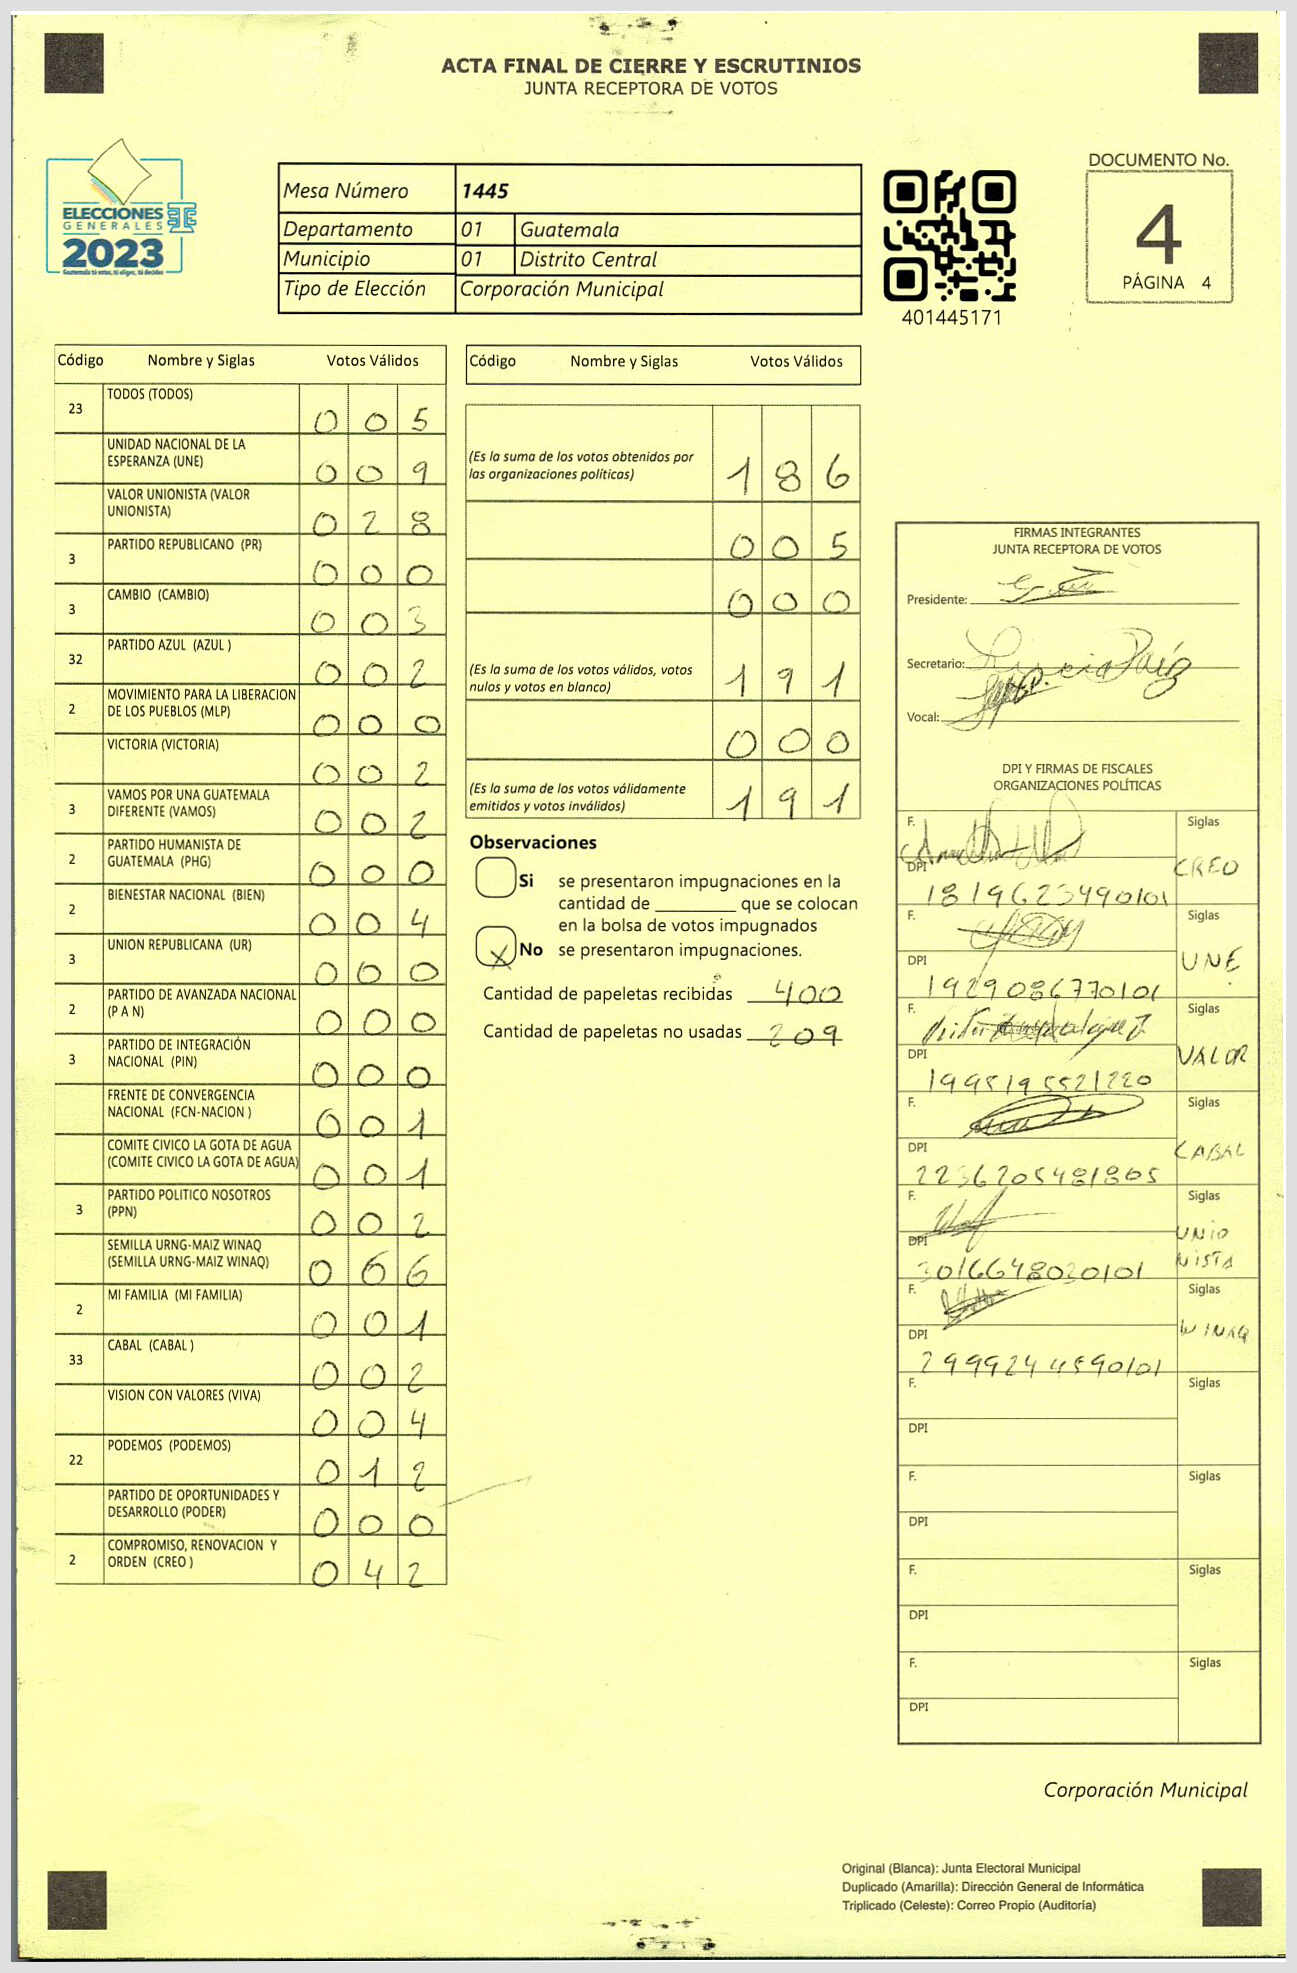 ACTA FINAL DE CIERRE Y ESCRUTINIOS
JUNTA RECEPTORA DE VOTOS
ELECCIONES
GENERALES
2023
Guatemala tú votas, tú eliges, tú decides
Mesa Número 1445
Departamento 01 Guatemala
Municipio 01 Distrito Central
Tipo de Elección Corporación Municipal
401445171
DOCUMENTO No.
4
PÁGINA 4
Código Nombre y Siglas Votos Válidos
23 TODOS (TODOS) 0 0 5
UNIDAD NACIONAL DE LA
ESPERANZA (UNE) 0 0 9
VALOR UNIONISTA (VALOR
UNIONISTA) 0 2 8
3 PARTIDO REPUBLICANO (PR) 0 0 0
3 CAMBIO (CAMBIO) 0 0 3
32 PARTIDO AZUL (AZUL ) 0 0 2
2 MOVIMIENTO PARA LA LIBERACION
DE LOS PUEBLOS (MLP) 0 0 0
VICTORIA (VICTORIA) 0 0 2
3 VAMOS POR UNA GUATEMALA
DIFERENTE (VAMOS) 0 0 2
2 PARTIDO HUMANISTA DE
GUATEMALA (PHG) 0 0 0
2 BIENESTAR NACIONAL (BIEN) 0 0 4
3 UNION REPUBLICANA (UR) 0 0 0
2 PARTIDO DE AVANZADA NACIONAL
(P A N) 0 0 0
3 PARTIDO DE INTEGRACIÓN
NACIONAL (PIN) 0 0 0
FRENTE DE CONVERGENCIA
NACIONAL (FCN-NACION ) 0 0 1
COMITE CIVICO LA GOTA DE AGUA
(COMITE CIVICO LA GOTA DE AGUA) 0 0 1
3 PARTIDO POLITICO NOSOTROS
(PPN) 0 0 2
SEMILLA URNG-MAIZ WINAQ
(SEMILLA URNG-MAIZ WINAQ) 0 6 6
2 MI FAMILIA (MI FAMILIA) 0 0 1
33 CABAL (CABAL ) 0 0 2
VISION CON VALORES (VIVA) 0 0 4
22 PODEMOS (PODEMOS) 0 1 2
PARTIDO DE OPORTUNIDADES Y
DESARROLLO (PODER) 0 0 0
2 COMPROMISO, RENOVACION Y
ORDEN (CREO ) 0 4 2
Código Nombre y Siglas Votos Válidos
(Es la suma de los votos obtenidos por
las organizaciones políticas) 1 8 6
0 0 5
0 0 0
(Es la suma de los votos válidos, votos
nulos y votos en blanco) 1 9 1
0 0 0
(Es la suma de los votos válidamente
emitidos y votos inválidos) 1 9 1
Observaciones
Si se presentaron impugnaciones en la
cantidad de ________ que se colocan
en la bolsa de votos impugnados
X No se presentaron impugnaciones.
Cantidad de papeletas recibidas 400
Cantidad de papeletas no usadas 209
FIRMAS INTEGRANTES
JUNTA RECEPTORA DE VOTOS
Presidente:
Secretario: Paíz
Vocal:
DPI Y FIRMAS DE FISCALES
ORGANIZACIONES POLÍTICAS
F. Siglas
CREO
DPI
1819623490101
F. Siglas
UNE
DPI
1929086770101
F. Siglas
VALOR
DPI
1995195521220
F. Siglas
CABAL
DPI
2236205481805
F. Siglas
UNIO
NISTA
DPI
3016648030101
F. Siglas
WINAQ
DPI
2999244590101
F. Siglas
DPI
F. Siglas
DPI
F. Siglas
DPI
F. Siglas
DPI
Corporación Municipal
Original (Blanca): Junta Electoral Municipal
Duplicado (Amarilla): Dirección General de Informática
Triplicado (Celeste): Correo Propio (Auditoría)